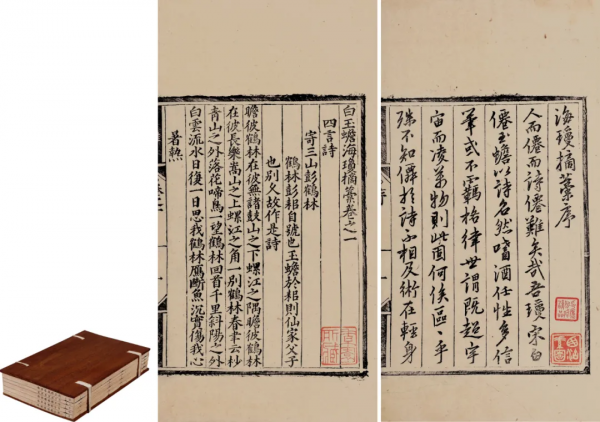 海瓊摘藁序
人而僊而詩僊難矣哉吾瓊宋白
僊玉蟾以詩名然嗜酒任性多信
筆或不羈格律世謂既超宇
宙而凌萬物則此固何俟區〻乎
殊不知僊於詩不相及術在輕身
白玉蟾海瓊摘藁卷之一
四言詩
寄三山彭鶴林
鶴林彭耜自號也玉蟾於耜則仙家父子
也別久故作是詩
瞻彼鶴林在彼無諸鼓山之下螺江之隅瞻彼鶴林
在彼長樂嵩山之上螺江之角一別鶴林春聿云杪
青山之外落花啼鳥一望鶴林回首千里斜陽之外
白雲流水日復一日思我鶴林鴈断魚沉實傷我心
暑熱